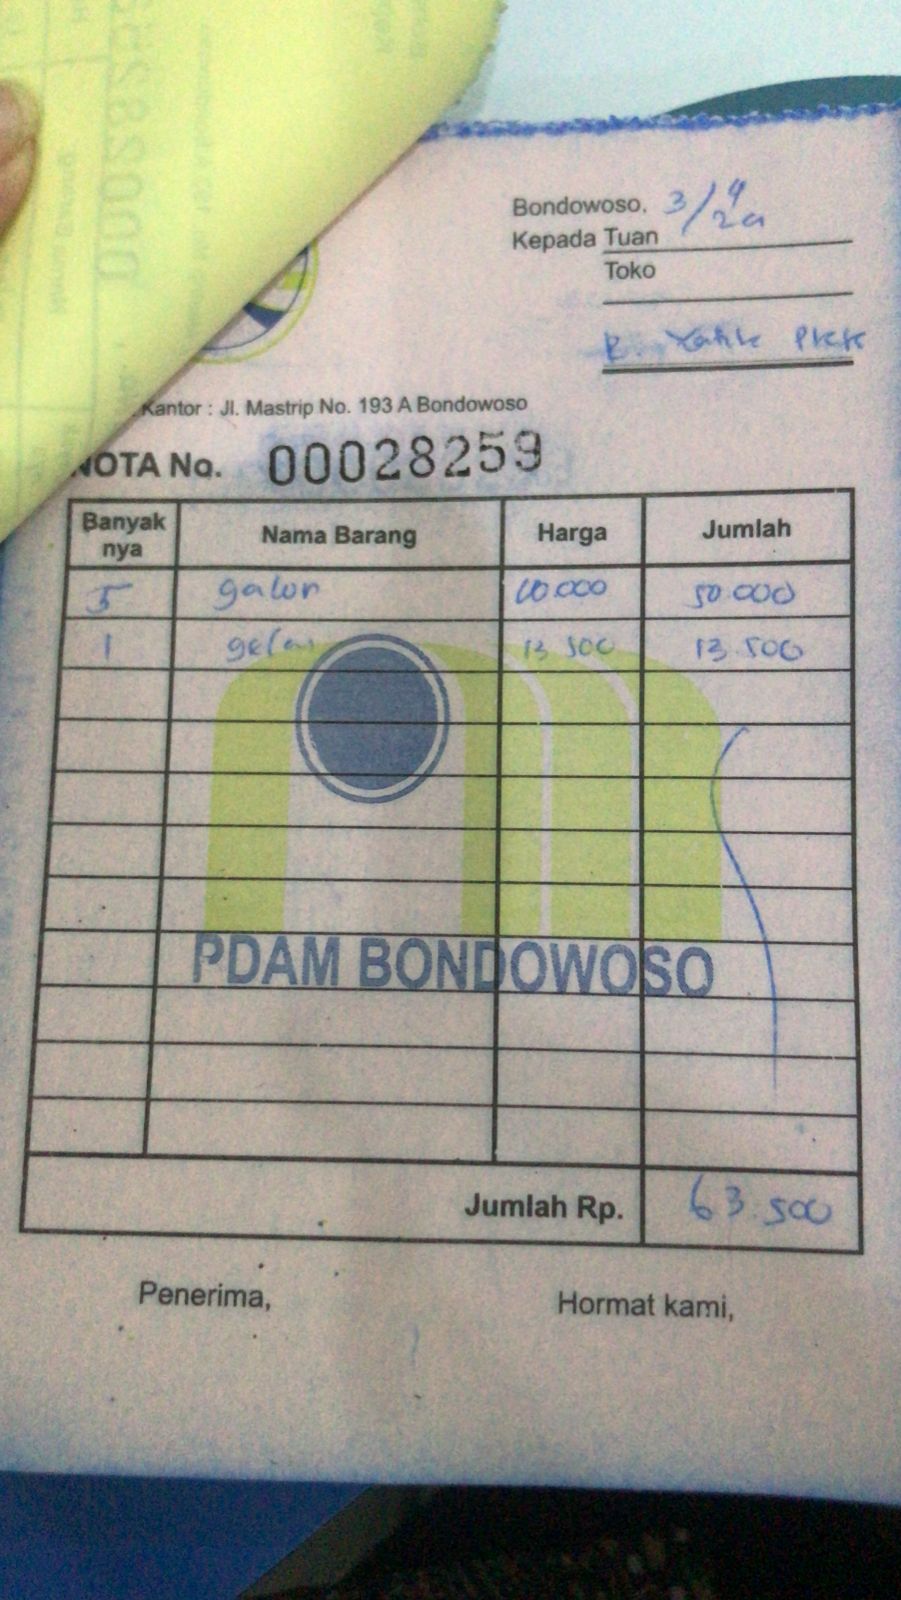 Bondowoso, 3/4
Kepada Tuan
Toko
Kantor : Jl. Mastrip No. 193 A Bondowoso
NOTA No. 00028259
Banyak nya Nama Barang Harga Jumlah
5 galon 10.000 50.000
1 gelas 13.500 13.500
PDAM BONDOWOSO
Jumlah Rp. 63.500
Penerima, Hormat kami,